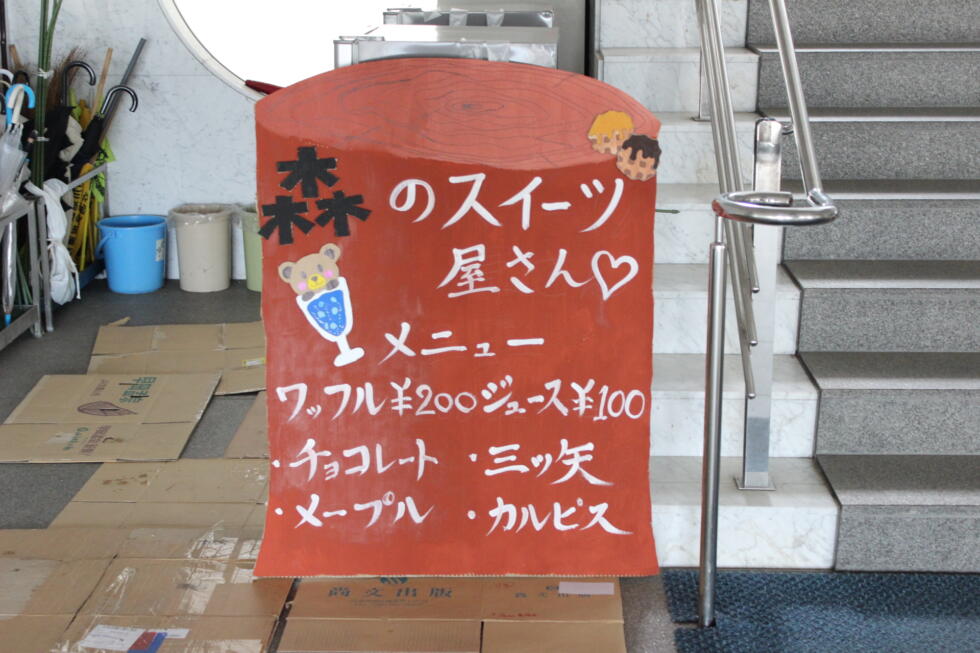 森のスイーツ
屋さん♡
メニュー
ワッフル¥200 ジュース¥100
・チョコレート ・三ッ矢
・メープル ・カルピス
尚文出版